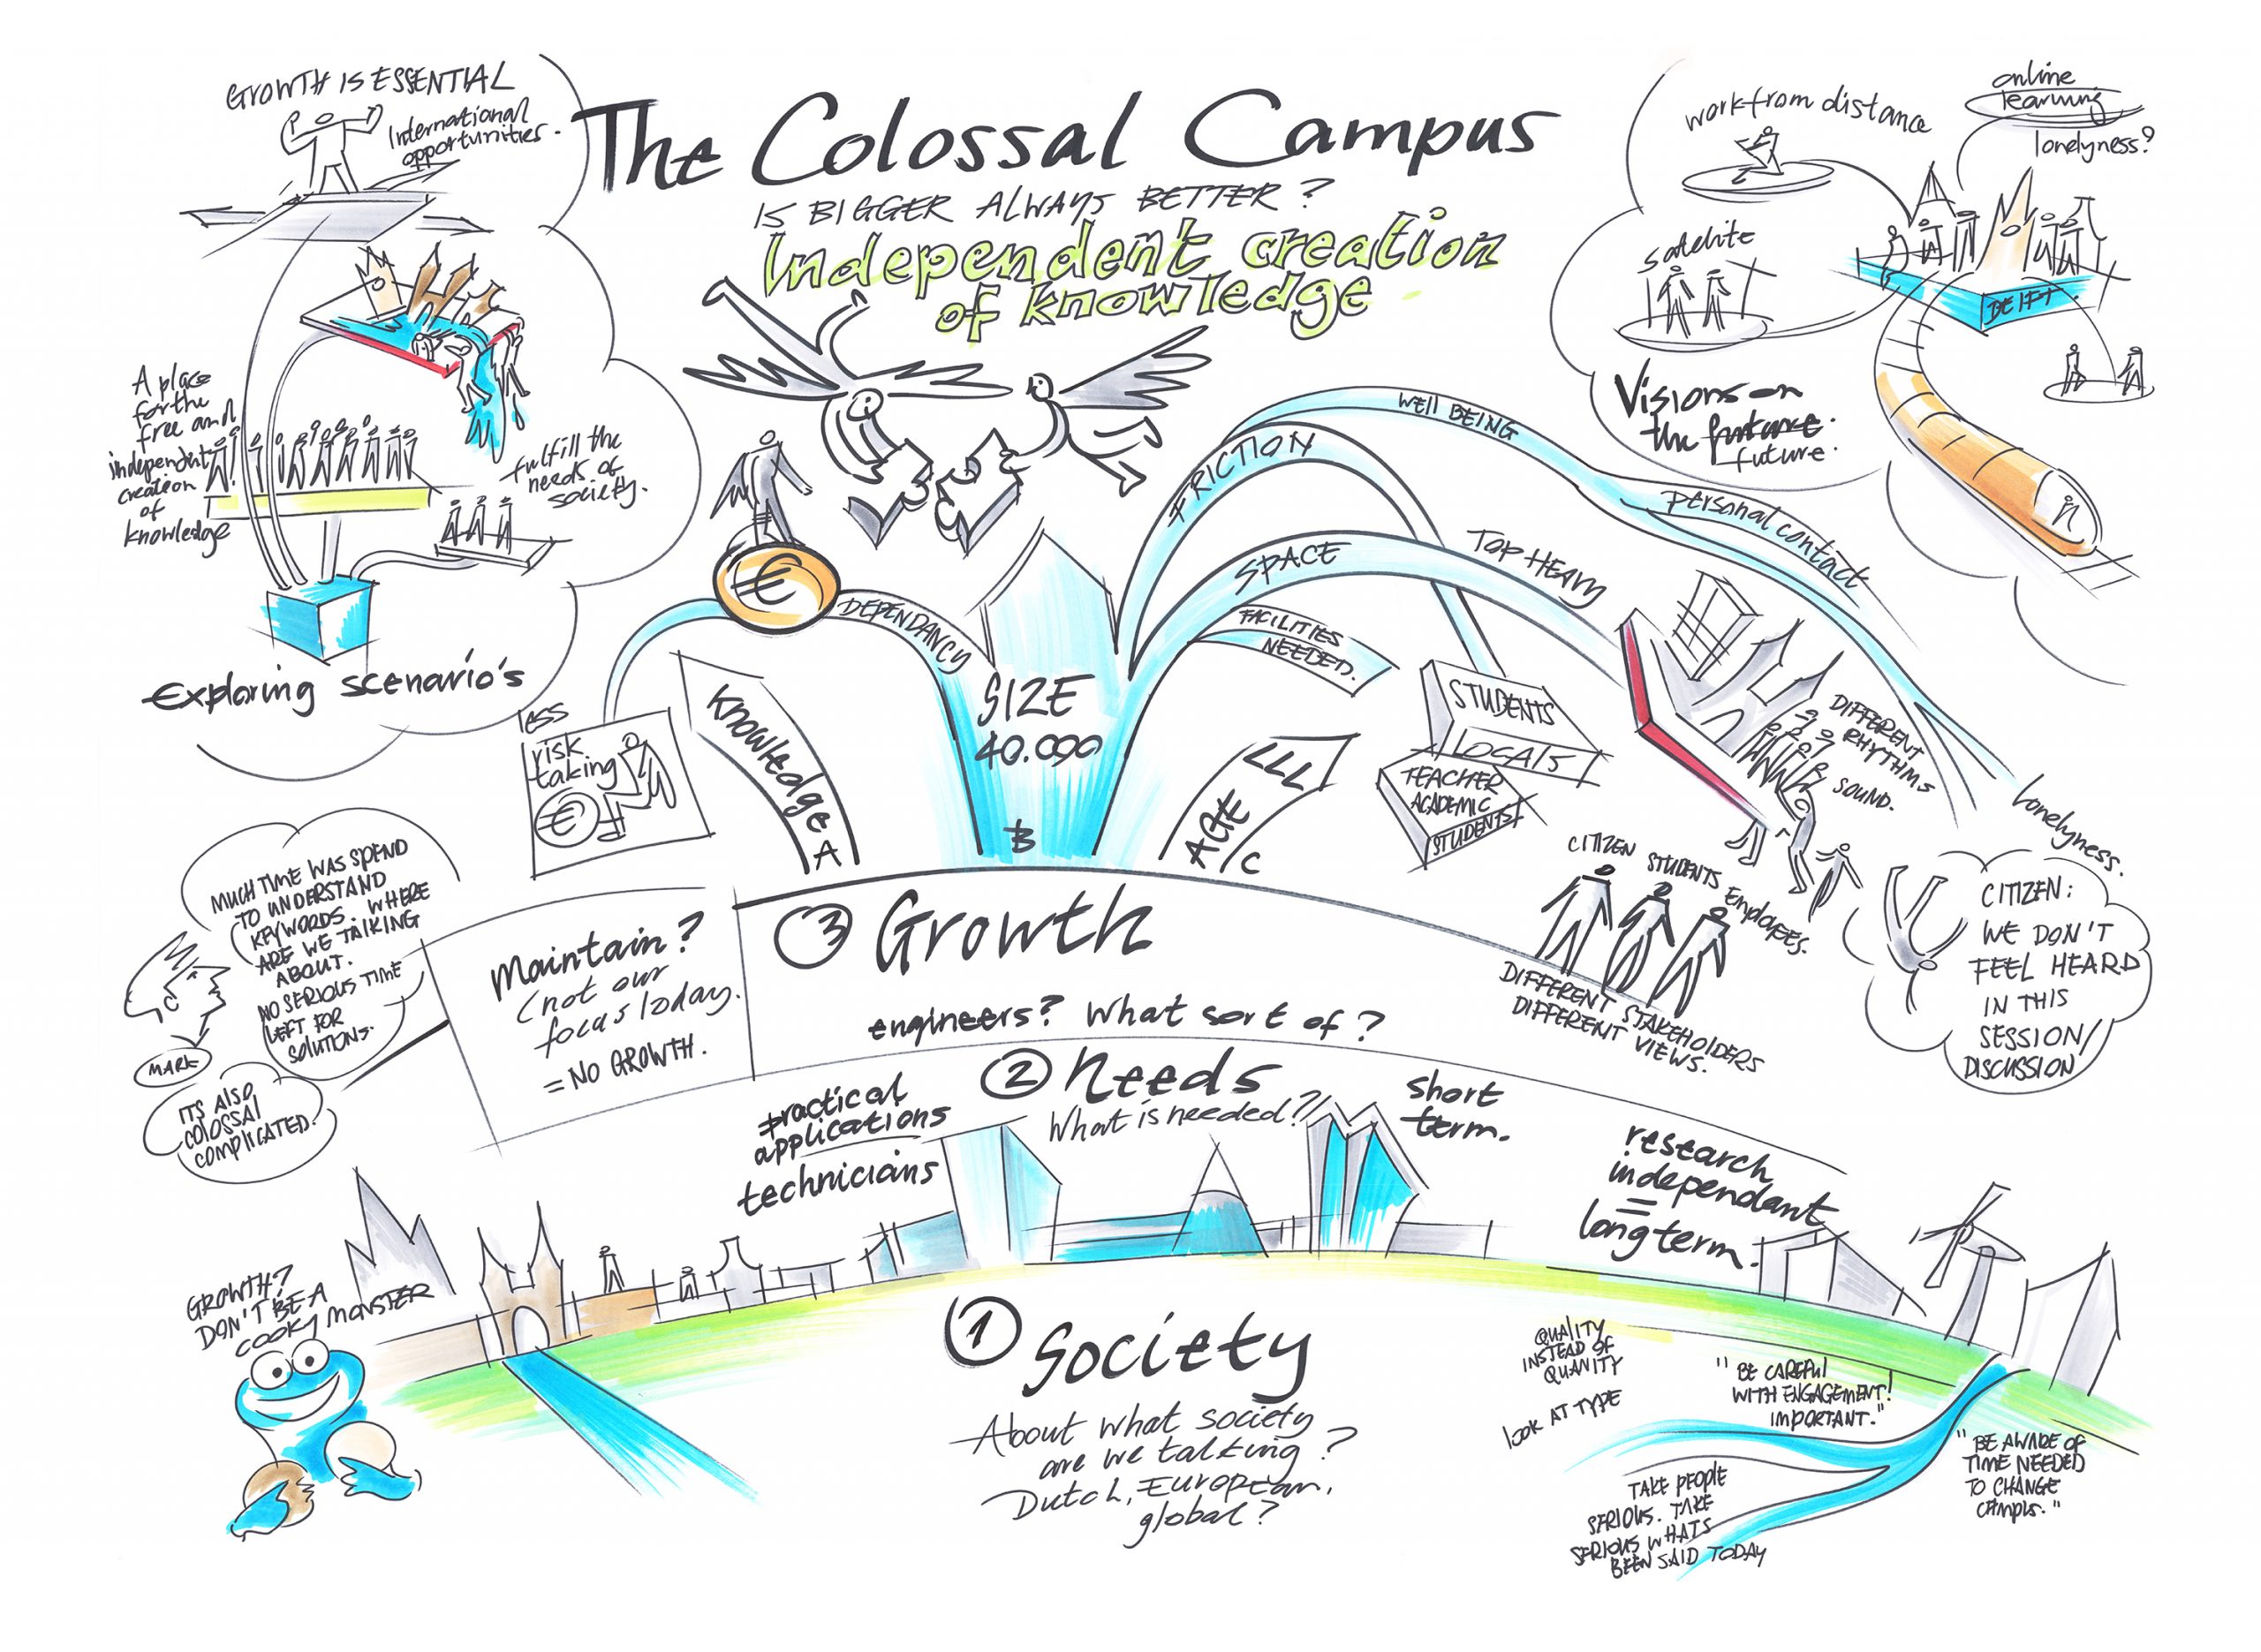 The Colossal Campus
IS BIGGER ALWAYS BETTER?
Independent creation
of knowledge
GROWTH IS ESSENTIAL
International
opportunities.
A place
for the
free and
independent
creation
of
knowledge
fulfill the
needs of
society.
Exploring scenario's
work from distance
online
learning
lonelyness?
satelite
DELFT
Visions on
the future.
future.
WELL BEING
FRICTION
personal contact
SPACE
TOP HEAVY
FACILITIES
NEEDED.
€
DEPENDANCY
SIZE
40.000
B
less
risk
taking
€
Knowledge
A
AGE
LLL
C
STUDENTS
LOCALS
TEACHER
ACADEMIC
STUDENTS
DIFFERENT
RHYTHMS
SOUND.
lonelyness.
CITIZEN STUDENTS Employees.
DIFFERENT STAKEHOLDERS
DIFFERENT VIEWS.
CITIZEN:
WE DON'T
FEEL HEARD
IN THIS
SESSION/
DISCUSSION
MUCH TIME WAS SPEND
TO UNDERSTAND
KEYWORDS. WHERE
ARE WE TALKING
ABOUT.
NO SERIOUS TIME
LEFT FOR
SOLUTIONS.
MARK
ITS ALSO
COLOSSAL
COMPLICATED.
Maintain?
(not our
focus today.
= NO GROWTH.
3 Growth
engineers? What sort of?
2 Needs
What is needed?
practical
applications
technicians
short
term.
research
independant
=
long term.
GROWTH?
DON'T BE A
COOKY MONSTER
1 Society
About what society
are we talking?
Dutch, European,
global?
QUALITY
INSTEAD OF
QUANITY
LOOK AT TYPE
"BE CAREFUL
WITH ENGAGEMENT!
IMPORTANT."
TAKE PEOPLE
SERIOUS. TAKE
SERIOUS WHATS
BEEN SAID TODAY
"BE AWARE OF
TIME NEEDED
TO CHANGE
CAMPUS."